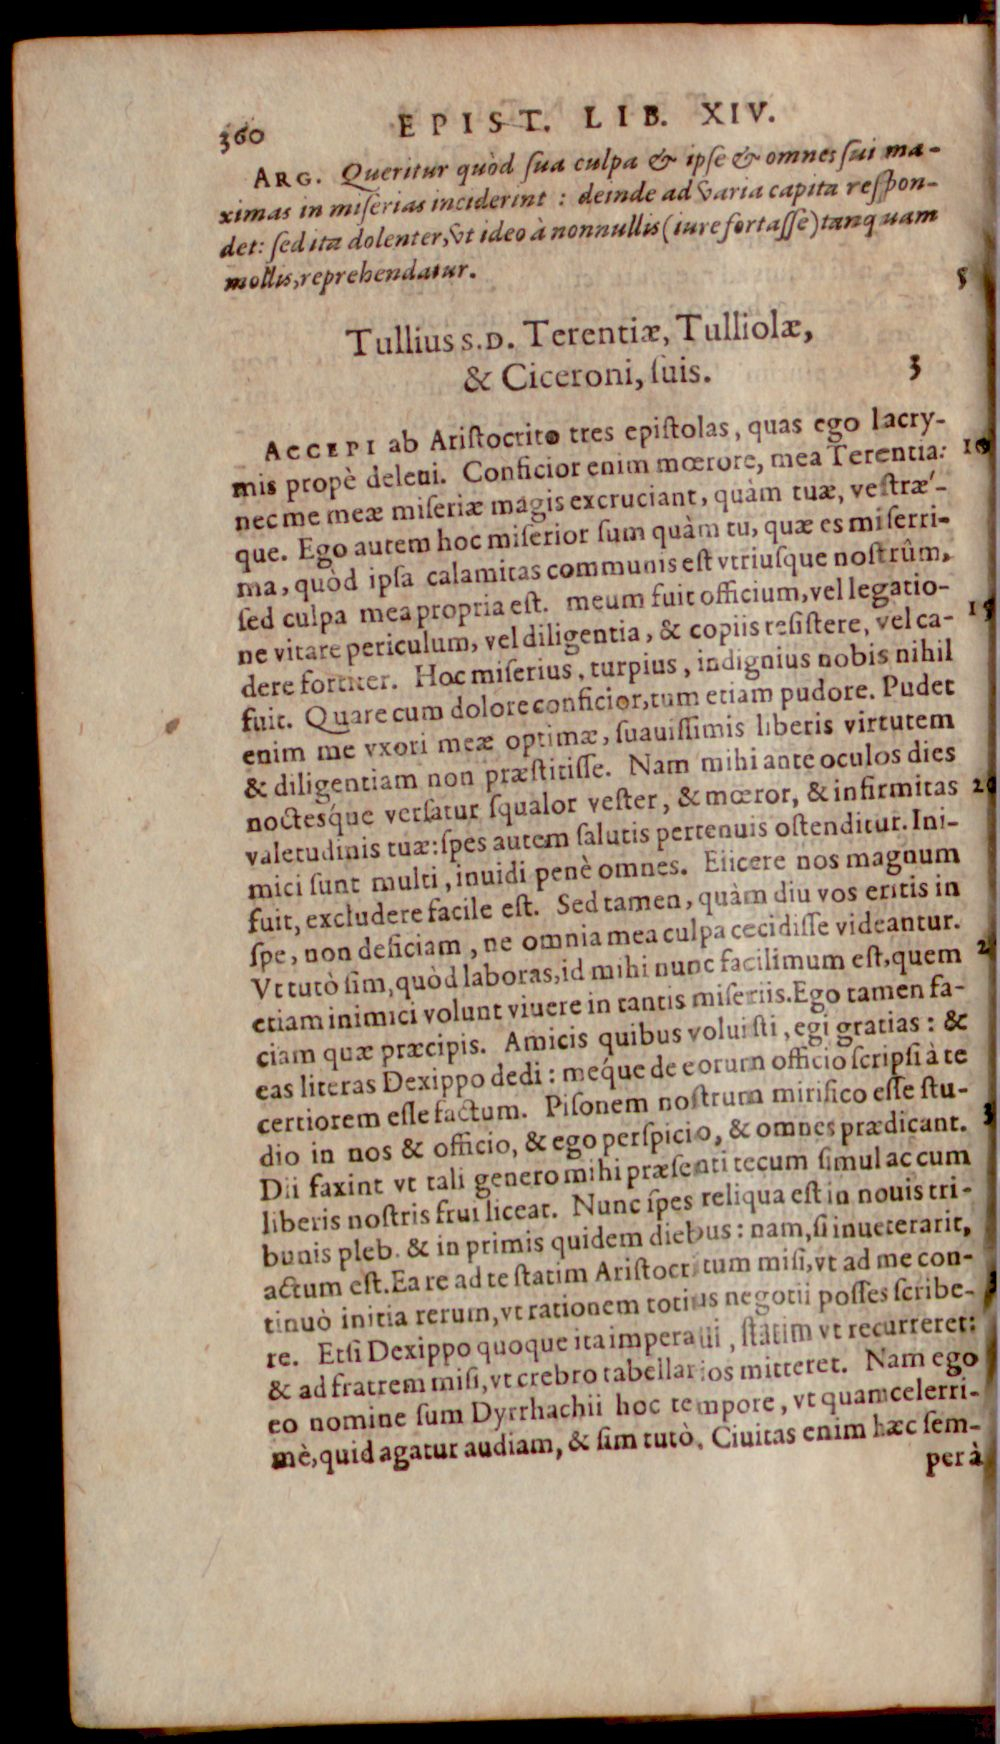 360 EPIST. LIB. XIV.
ARG. Queritur quòd ſua culpa & ipſe & omnes ſui ma-
ximas in miſerias inciderint : deinde ad varia capita reſpon-
det: ſed ita dolenter, vt ideo à nonnullis (iure fortaſſe) tanquam
mollis, reprehendatur.
5
Tullius S.D. Terentiæ, Tulliolæ,
& Ciceroni, ſuis. 3
ACCEPI ab Ariſtocrito tres epiſtolas, quas ego lacry-
mis propè deleui. Conficior enim mœrore, mea Terentia: 10
nec me meæ miſeriæ magis excruciant, quàm tuæ, veſtræ´-
que. Ego autem hoc miſerior ſum quàm tu, quæ es miſerri-
ma, quòd ipſa calamitas communis eſt vtriuſque noſtrûm,
ſed culpa mea propria eſt. meum fuit officium, vel legatio-
ne vitare periculum, vel diligentia, & copiis reſiſtere, vel ca- 15
dere fortiter. Hoc miſerius, turpius, indignius nobis nihil
fuit. Quare cum dolore conficior, tum etiam pudore. Pudet
enim me vxori meæ optimæ, ſuauiſſimis liberis virtutem
& diligentiam non præſtitiſſe. Nam mihi ante oculos dies
noctesq́ue verſatur ſqualor veſter, & mœror, & infirmitas 20
valetudinis tuæ: ſpes autem ſalutis pertenuis oſtenditur. Ini-
mici ſunt multi, inuidi penè omnes. Eiicere nos magnum
fuit, excludere facile eſt. Sed tamen, quàm diu vos eritis in
ſpe, non deficiam, ne omnia mea culpa cecidiſſe videantur.
Vt tutò ſim, quòd laboras, id mihi nunc facilimum eſt, quem 2
etiam inimici volunt viuere in tantis miſeriis. Ego tamen fa-
ciam quæ præcipis. Amicis quibus voluiſti, egi gratias : &
eas literas Dexippo dedi : meq́ue de eorum officio ſcripſi à te
certiorem eſſe factum. Piſonem noſtrum mirifico eſſe ſtu-
dio in nos & officio, & ego perſpicio, & omnes prædicant. 3
Dii faxint vt tali genero mihi præſenti tecum ſimul ac cum
liberis noſtris frui liceat. Nunc ſpes reliqua eſt in nouis tri-
bunis pleb. & in primis quidem diebus : nam, ſi inueterarit,
actum eſt. Ea re ad te ſtatim Ariſtocritum miſi, vt ad me con-
tinuò initia rerum, vt rationem totius negotii poſſes ſcribe- 3
re. Etſi Dexippo quoque ita imperaui, ſtatim vt recurreret:
& ad fratrem miſi, vt crebro tabellarios mitteret. Nam ego
eo nomine ſum Dyrrhachii hoc tempore, vt quam celerri-
mè, quid agatur audiam, & ſim tutò. Ciuitas enim hæc ſem-
per à